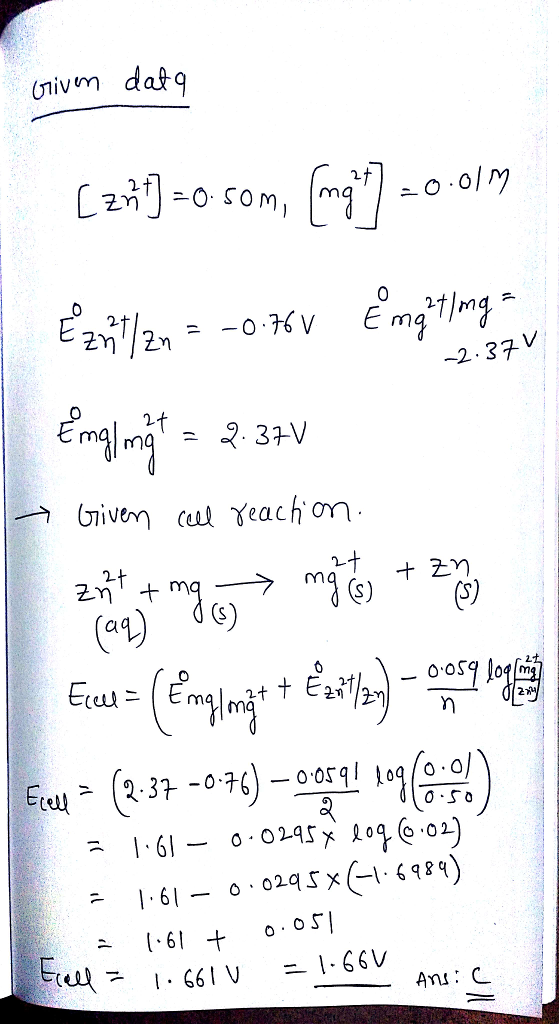 Given data
[Zn²⁺] = 0.50m, [mg²⁺] = 0.01M
E⁰ Zn²⁺/Zn = -0.76 V E⁰ mg²⁺/mg =
-2.37 V
E⁰ mg/mg²⁺ = 2.37V
→ Given cell reaction.
Zn²⁺ + mg (s) → mg²⁺ (s) + Zn (s)
(aq)
Ecell = (E⁰ mg/mg²⁺ + E⁰ Zn²⁺/Zn) - 0.059/n log [mg²⁺]/[Zn²⁺]
Ecell = (2.37 - 0.76) - 0.0591/2 log (0.01/0.50)
= 1.61 - 0.0295 x log (0.02)
= 1.61 - 0.0295 x (-1.6989)
= 1.61 + 0.051
Ecell = 1.661 V = 1.66V Ans: C